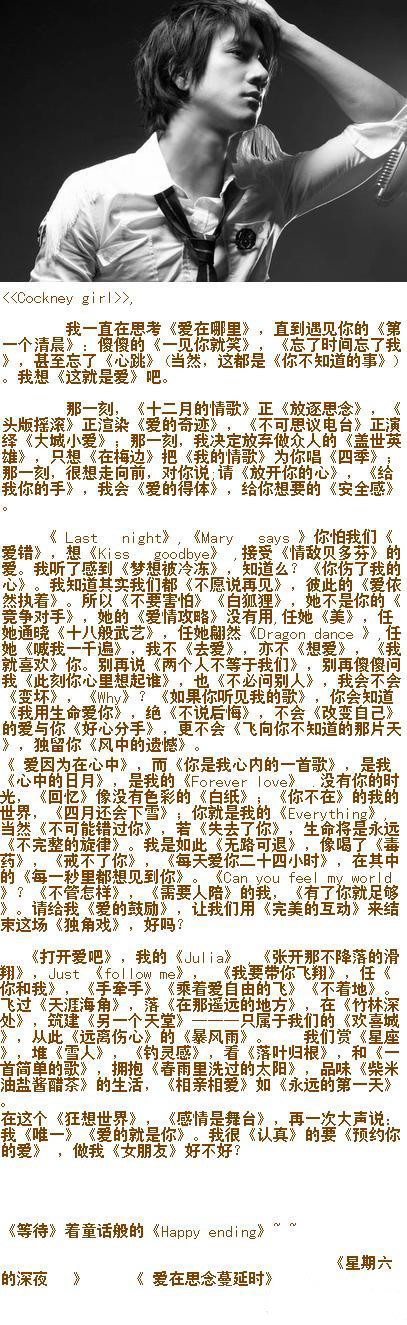 <<Cockney girl>>,
我一直在思考《爱在哪里》，直到遇见你的《第
一个清晨》：傻傻的《一见你就笑》，《忘了时间忘了我
》，甚至忘了《心跳》(当然，这都是《你不知道的事》)
。我想《这就是爱》吧。
那一刻，《十二月的情歌》正《放逐思念》，《
头版摇滚》正渲染《爱的奇迹》，《不可思议电台》正演
绎《大城小爱》；那一刻，我决定放弃做众人的《盖世英
雄》，只想《在梅边》把《我的情歌》为你唱《四季》；
那一刻，很想走向前，对你说,请《放开你的心》，《给
我你的手》，我会《爱的得体》，给你想要的《安全感》
。
《 Last  night》,《Mary  says 》你怕我们《
爱错》，想《Kiss  goodbye》 ,接受《情敌贝多芬》的
爱。我听了感到《梦想被冷冻》，知道么？《你伤了我的
心》。我知道其实我们都《不愿说再见》，彼此的《爱依
然执着》。所以《不要害怕》《白狐狸》，她不是你的《
竞争对手》，她的《爱情攻略》没有用,任她《美》，任
她通晓《十八般武艺》，任她翩然《Dragon dance 》,任
她《喊我一千遍》，我不《去爱》，亦不《想爱》，《我
就喜欢》你。别再说《两个人不等于我们》，别再傻傻问
我《此刻你心里想起谁》，也《不必问别人》，我会不会
《变坏》，《Why》？《如果你听见我的歌》，你会知道
《我用生命爱你》，绝《不说后悔》，不会《改变自己》
的爱与你《好心分手》，更不会《飞向你不知道的那片天
》，独留你《风中的遗憾》。
《 爱因为在心中》，而《你是我心内的一首歌》，是我
《心中的日月》，是我的《Forever love》 ,没有你的时
光，《回忆》像没有色彩的《白纸》；《你不在》的我的
世界，《四月还会下雪》；你就是我的《Everything》,
当然《不可能错过你》，若《失去了你》，生命将是永远
《不完整的旋律》。我是如此《无路可退》，像喝了《毒
药》，《戒不了你》，《每天爱你二十四小时》，在其中
的《每一秒里都想见到你》。《Can you feel my world
》？《不管怎样》，《需要人陪》的我，《有了你就足够
》。请给我《爱的鼓励》，让我们用《完美的互动》来结
束这场《独角戏》，好吗？
《打开爱吧》，我的《Julia》 ,《张开那不降落的滑
翔》，Just 《follow me》， 《我要带你飞翔》，任《
你和我》，《手牵手》《乘着爱自由的飞》《不着地》。
飞过《天涯海角》，落《在那遥远的地方》，在《竹林深
处》，筑建《另一个天堂》———只属于我们的《欢喜城
》，从此《远离伤心》的《暴风雨》。  我们赏《星座
》，堆《雪人》，《钓灵感》，看《落叶归根》，和《一
首简单的歌》，拥抱《春雨里洗过的太阳》，品味《柴米
油盐酱醋茶》的生活，《相亲相爱》如《永远的第一天》
。
在这个《狂想世界》，《感情是舞台》，再一次大声说：
我《唯一》《爱的就是你》。我很《认真》的要《预约你
的爱》 ，做我《女朋友》好不好？
《等待》着童话般的《Happy ending》~ ~
《星期六
的深夜  》   《 爱在思念蔓延时》